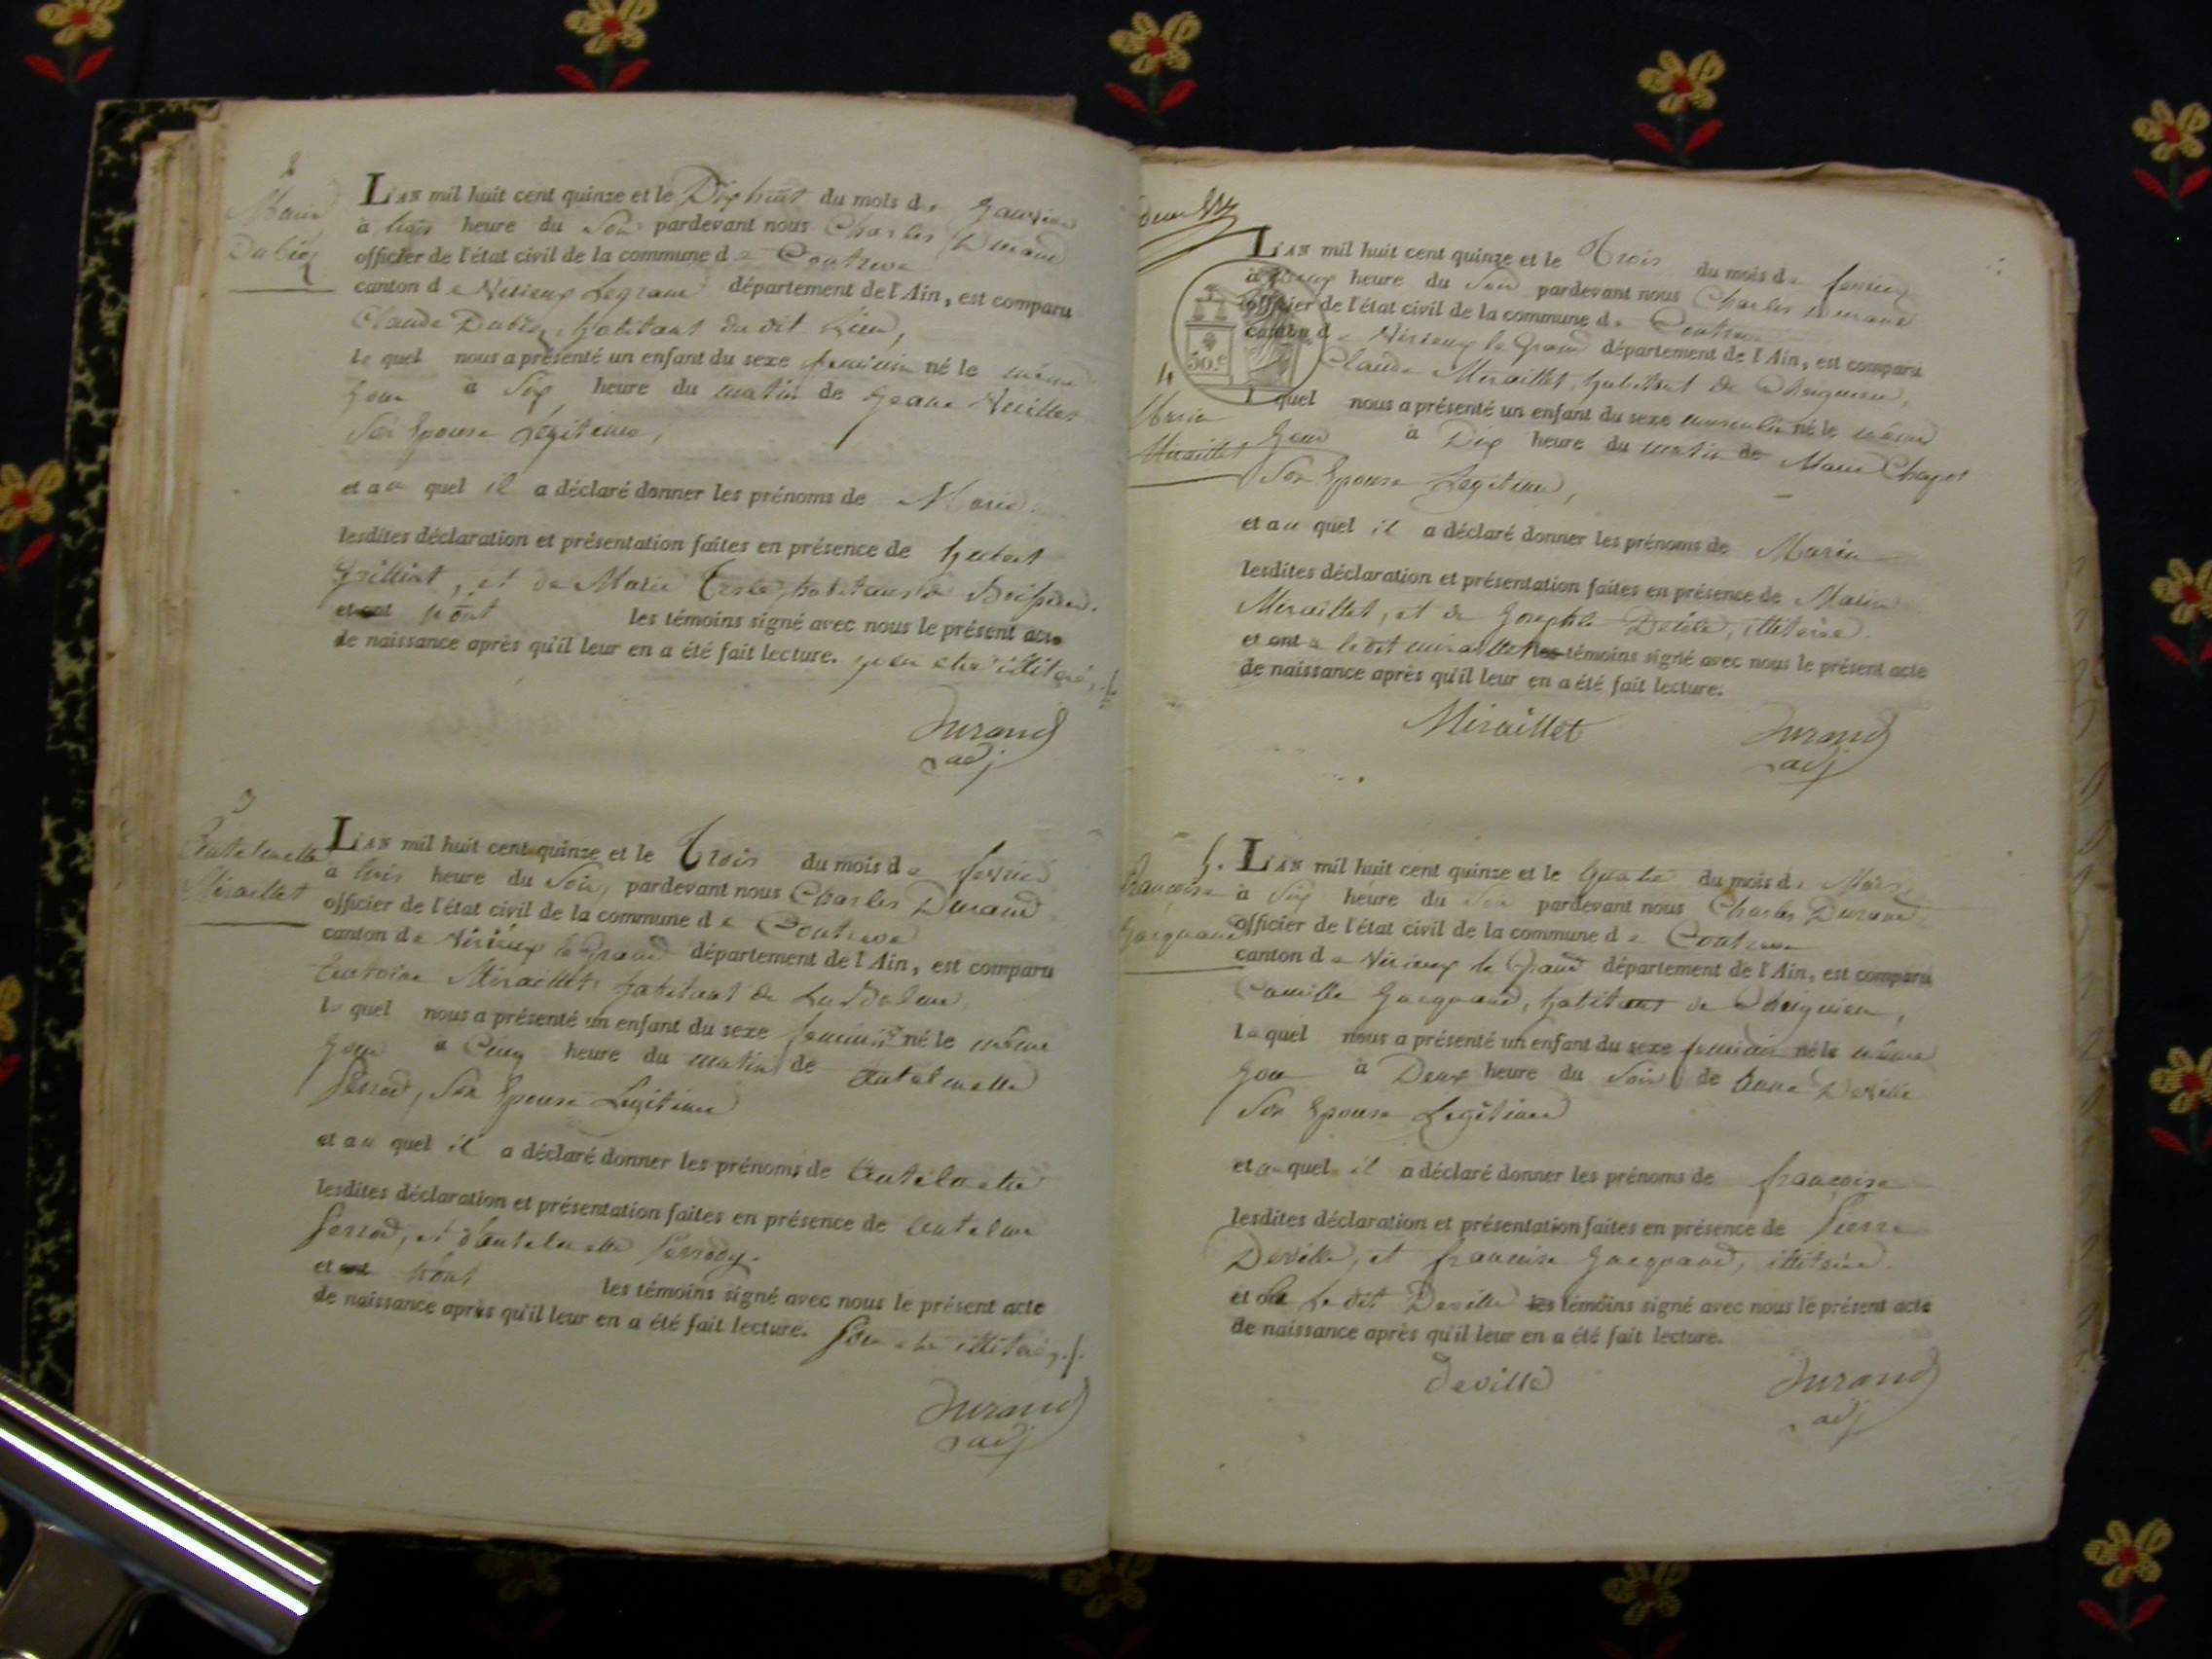 2
Marie
Dubiez
L'AN mil huit cent quinze et le Dix huit du mois de Janvier
à trois heure du Soir pardevant nous Charles Durand
officier de l'état civil de la commune de Contrevo
canton de Virieux Legrand département de l'Ain, est comparu
Claude Dubiez, habitant du dit Lieu,
le quel nous a présenté un enfant du sexe feminin né le même
Jour à Six heure du matin de Jeane
Son Epouse Légitime,
et au quel il a déclaré donner les prénoms de Marie
lesdites déclaration et présentation faites en présence de hubert
et de Marie habitants de
et ont n'ont les témoins signé avec nous le présent acte
de naissance après qu'il leur en a été fait lecture. pour etre illiteré,./.
Durand
adj
3
Antelmette
Miraillet
L'AN mil huit cent quinze et le Trois du mois de fevrier
à trois heure du Soir, pardevant nous Charles Durand
officier de l'état civil de la commune de Contrevo
canton de Virieux le Grand département de l'Ain, est comparu
Antoine Miraillet habitant de La Balme
le quel nous a présenté un enfant du sexe feminin né le même
Jour à Cinq heure du matin de Antelmette
Perrod, Son Epouse Legitime
et au quel il a déclaré donner les prénoms de Antelmette
lesdites déclaration et présentation faites en présence de Antelme
Perrod, et d'Antelmette Perrody.
et ont n'ont les témoins signé avec nous le présent acte
de naissance après qu'il leur en a été fait lecture. Pour etre illiteré,./.
Durand
adj
50.c
4
Marin
Miraillet
L'AN mil huit cent quinze et le Trois du mois de fevrier
à heure du Soir pardevant nous Charles Durand
officier de l'état civil de la commune de Contrevo
canton de Virieux le Grand département de l'Ain, est comparu
Claude Miraillet, habitant de Cheignieu,
l quel nous a présenté un enfant du sexe masculin né le même
Jour à Dix heure du matin de Marie Chapot
Son Epouse Legitime,
et au quel il a déclaré donner les prénoms de Marin
lesdites déclaration et présentation faites en présence de Marin
Miraillet, et de Josephte illiterée.
et ont a le dit miraillet les témoins signé avec nous le présent acte
de naissance après qu'il leur en a été fait lecture.
Miraillet
Durand
adj
5.
françoise
Jacquand
L'AN mil huit cent quinze et le quatre du mois de Mars
à Six heure du Soir pardevant nous Charles Durand
officier de l'état civil de la commune de Contrevo
canton de Virieux le Grand département de l'Ain, est comparu
Camille Jacquand, habitant de Cheignieu,
le quel nous a présenté un enfant du sexe feminin né le même
Jour à Deux heure du Soir de Anne Deville
Son Epouse Legitime
et au quel il a déclaré donner les prénoms de françoise
lesdites déclaration et présentation faites en présence de Pierre
Deville, et françoise Jacquand, illiterée.
et a Le dit Deville les témoins signé avec nous le présent acte
de naissance après qu'il leur en a été fait lecture.
deville
Durand
adj